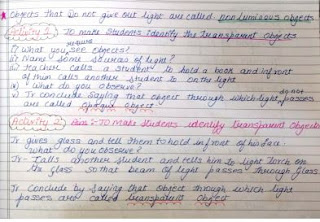 Objects that Do not give out light are called non luminous objects
Activity 1) To make students identify the transparent objects
i) What you see objects?
ii) Name some sources of light?
iii) Teacher calls a student to hold a book and infront
of him calls another student to on the light
iv) What do you observe?
v) Tr conclude saying that object through which light do not passes
are called opaque object
Activity 2) Aim:- To Make students identify transparent Objects
Tr gives glass and tell them to hold infront of his face.
what do you observe?
Tr- Calls another student and tells him to light Torch on
the glass so that beam of light passes through glass.
Tr Conclude by saying that object through which light
passes are called transparent Object